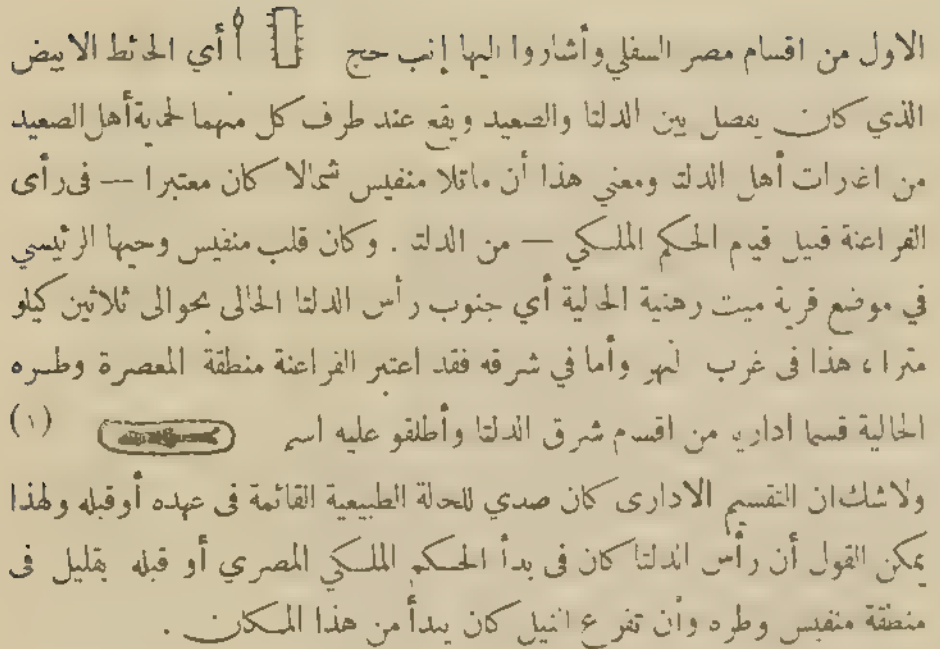 الاول من اقسام مصر السفلي وأشاروا اليها إنب حج أي الحائط الابيض
الذي كان يفصل بين الدلتا والصعيد ويقع عند طرف كل منهما لحماية أهل الصعيد
من اغارات أهل الدلتا ومعني هذا أن ماتلا منفيس شمالا كان معتبرا — فى رأى
الفراعنة قبيل قيام الحكم الملكي — من الدلتا . وكان قلب منفيس وحيها الرئيسي
في موضع قرية ميت رهنية الحالية أي جنوب رأس الدلتا الحالى بحوالى ثلاثين كيلو
مترا ، هذا فى غرب النهر وأما في شرقه فقد اعتبر الفراعنة منطقة المعصرة وطره
الحالية قسما اداريا من اقسام شرق الدلتا وأطلقو عليه اسم (١)
ولاشك ان التقسيم الادارى كان صدي للحالة الطبيعية القائمة فى عهده أو قبله ولهذا
يمكن القول أن رأس الدلتا كان فى بدأ الحكم الملكي المصري أو قبله بقليل فى
منطقة منفيس وطره وأن تفرع النيل كان يبدأ من هذا المكان .